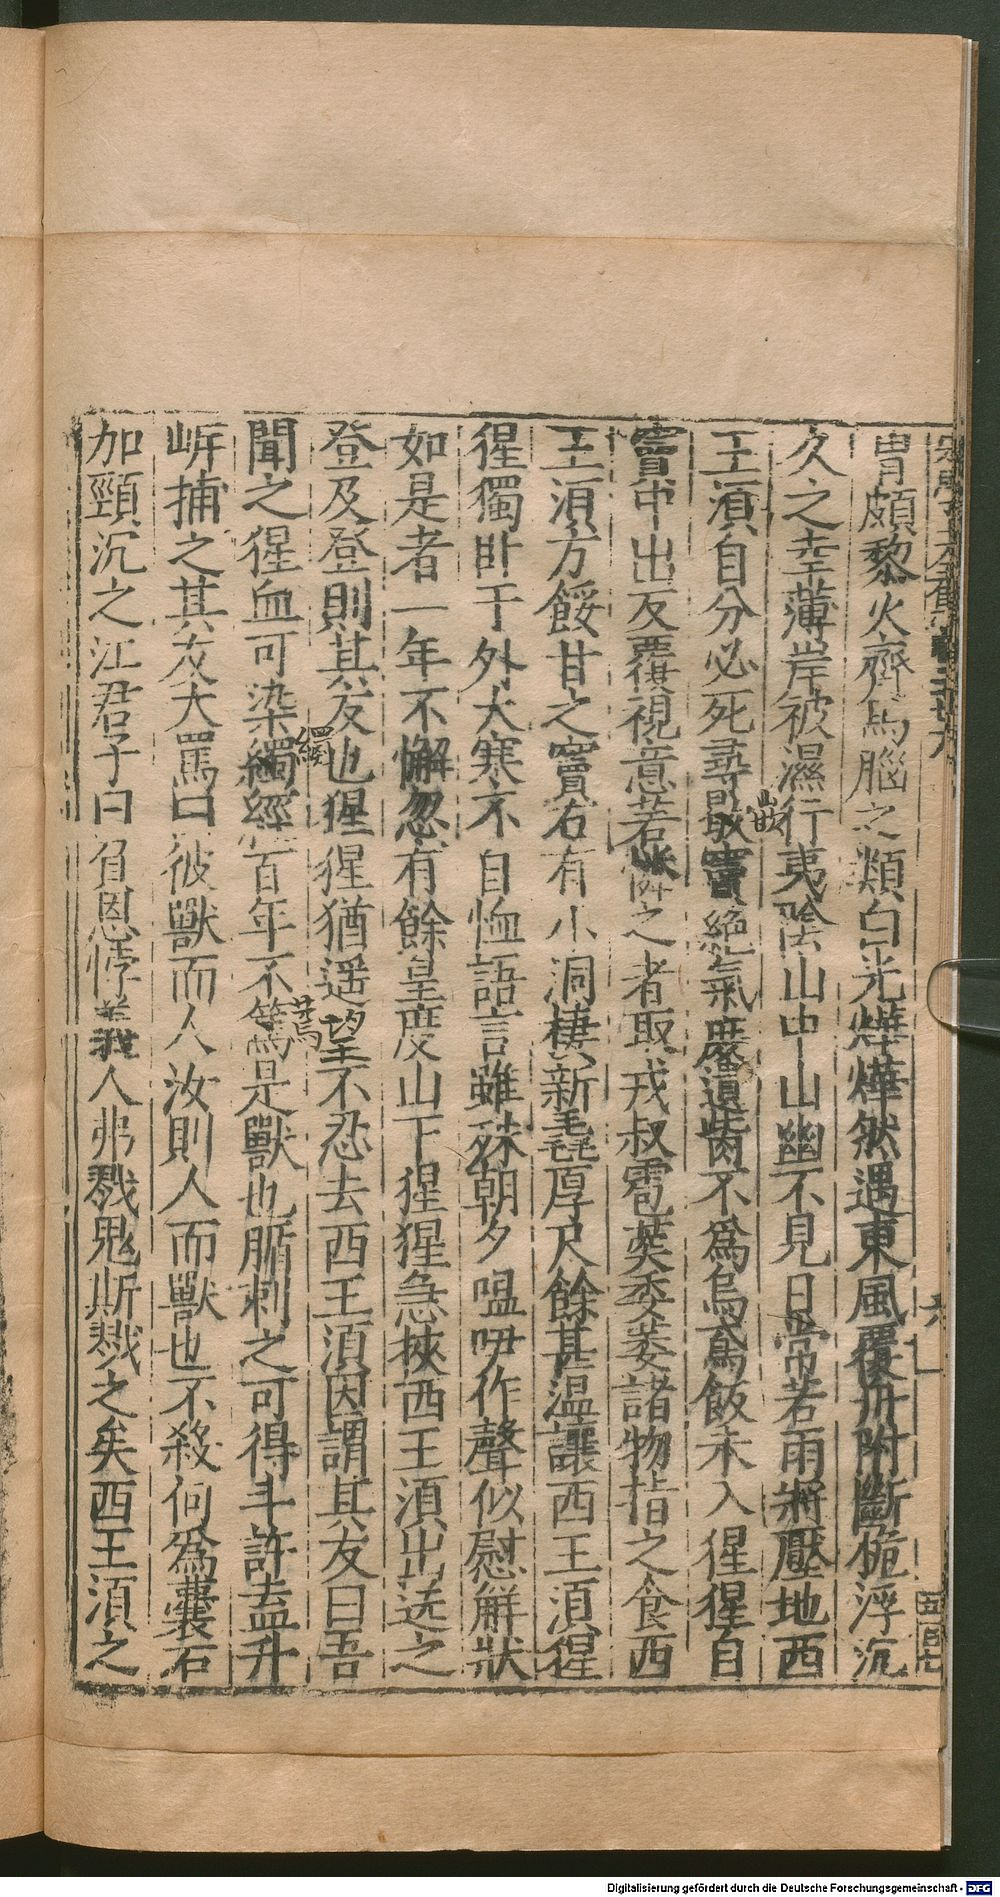 胄頗黎火齊馬腦之類白光燁燁然遇東風覆舟附斷桅浮沉
久之幸薄岸被濕行夷陰山中山幽不見日常若雨將壓地西
王湏自分必死尋嵌竇絕氣庶遺胔不爲烏鳶飯未入猩猩自
竇中出反覆視意若憐之者取戎叔雹葖委萎諸物指之食西
王湏方餒甘之竇右有小洞棲新毳厚尺餘甚温讓西王湏猩
猩獨卧于外大寒不自恤語言雖殊朝夕嗢咿作聲似慰解狀
如是者一年不懈忽有餘皇度山下猩猩急挾西王湏出送之
登及登則其友也猩猩猶遥望不忍去西王湏因謂其友曰吾
聞之猩血可染䌫經百年不蔫是獸也腯刺之可得斗許盍升
岸捕之其友大罵曰彼獸而人汝則人而獸也不殺何爲囊石
加頸沉之江君子曰負恩悖義人弗戮鬼斯戮之矣西王湏之
六
五百七
嵌
䌫
蔫
Digitalisierung gefördert durch die Deutsche Forschungsgemeinschaft - DFG